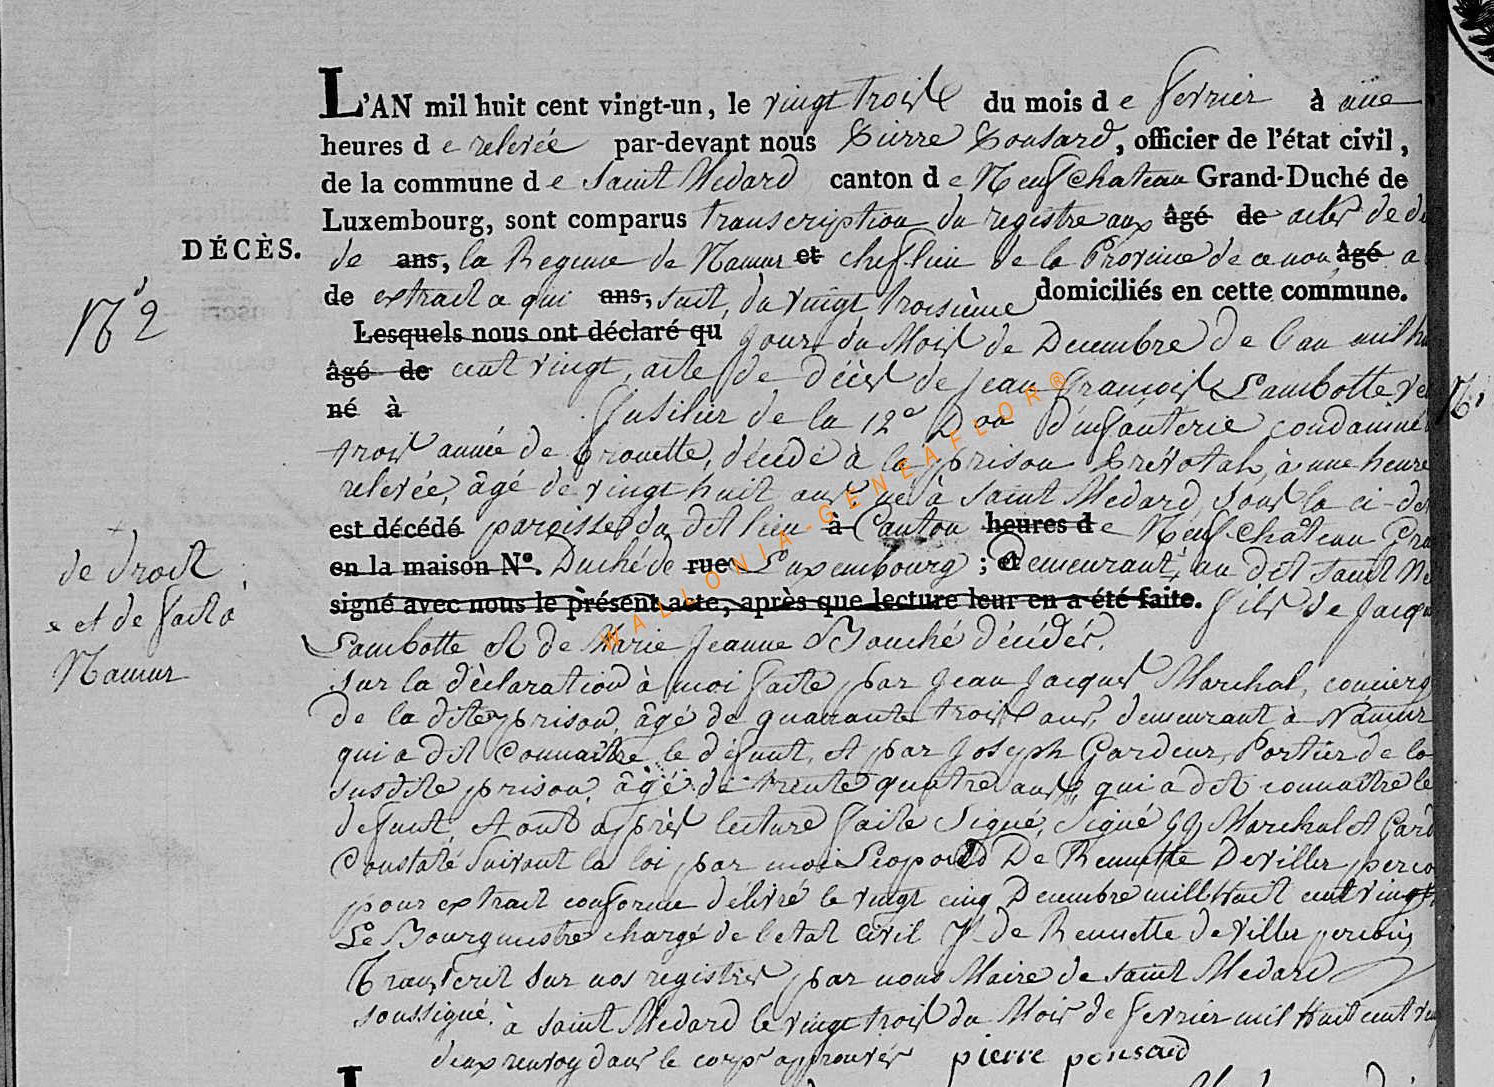 L'AN mil huit cent vingt-un, le vingt trois du mois de fevrier à une
heures de relevée par-devant nous Pierre Ponsard, officier de l'état civil,
de la commune de Saint Medard canton de Neufchateau Grand-Duché de
Luxembourg, sont comparus transcription du registre aux âgé de actes de
DÉCÈS.
de ans, la Regence de Namur et cheflieu de la Province de ce nom âgé a
de extrait a qui ans, suit, du vingt troisieme domiciliés en cette commune.
N° 2
Lesquels nous ont déclaré qu jour du Mois de Decembre de l'an mil
âgé de cent vingt, acte de décès de Jean François Lambotte
né à fusilier de la 12e Don d'infanterie condamné
trois année de brouette, décédé à la prison Prévotale, à une heure
relevée, âgé de vingt huit ans né à Saint Medard, sous la
est décédé paroisse du dit lieu à Canton heures de Neufchâteau
en la maison N°. Duché de rue Luxembourg ; et Demeurant au dit Saint
signé avec nous le présent acte, après que lecture leur en a été faite. fils de
de droit
et de fait à
Namur
Lambotte et de Marie Jeanne Bouché décédés.
sur la déclaration à moi faite par Jean Jacques Marchal, concierg
de la dite prison, âgé de quarante trois ans, demeurant à Namur
qui a dit connaitre le défunt, et par Joseph Gardeur, Portier de la
susdite prison, âgé de trente quatre ans, qui a dit connaitre le
defunt, et ont après lecture faite signé, signé Marchal et
Constaté suivant la loi par moi Leopold De Remette Deviller
pour extrait conforme délivré le vingt cinq Decembre mill Huit cent vingt
Le Bourgmestre chargé de l'etat civil de Remette deviller
Transcrit sur nos registres par nous Maire de Saint Medard
soussigné. à Saint Medard le vingt trois du Mois de fevrier mil Huit cent
deux renvoy dans le corps approuvés pierre ponsard
L
WALLONIA-GENEAFLOR®